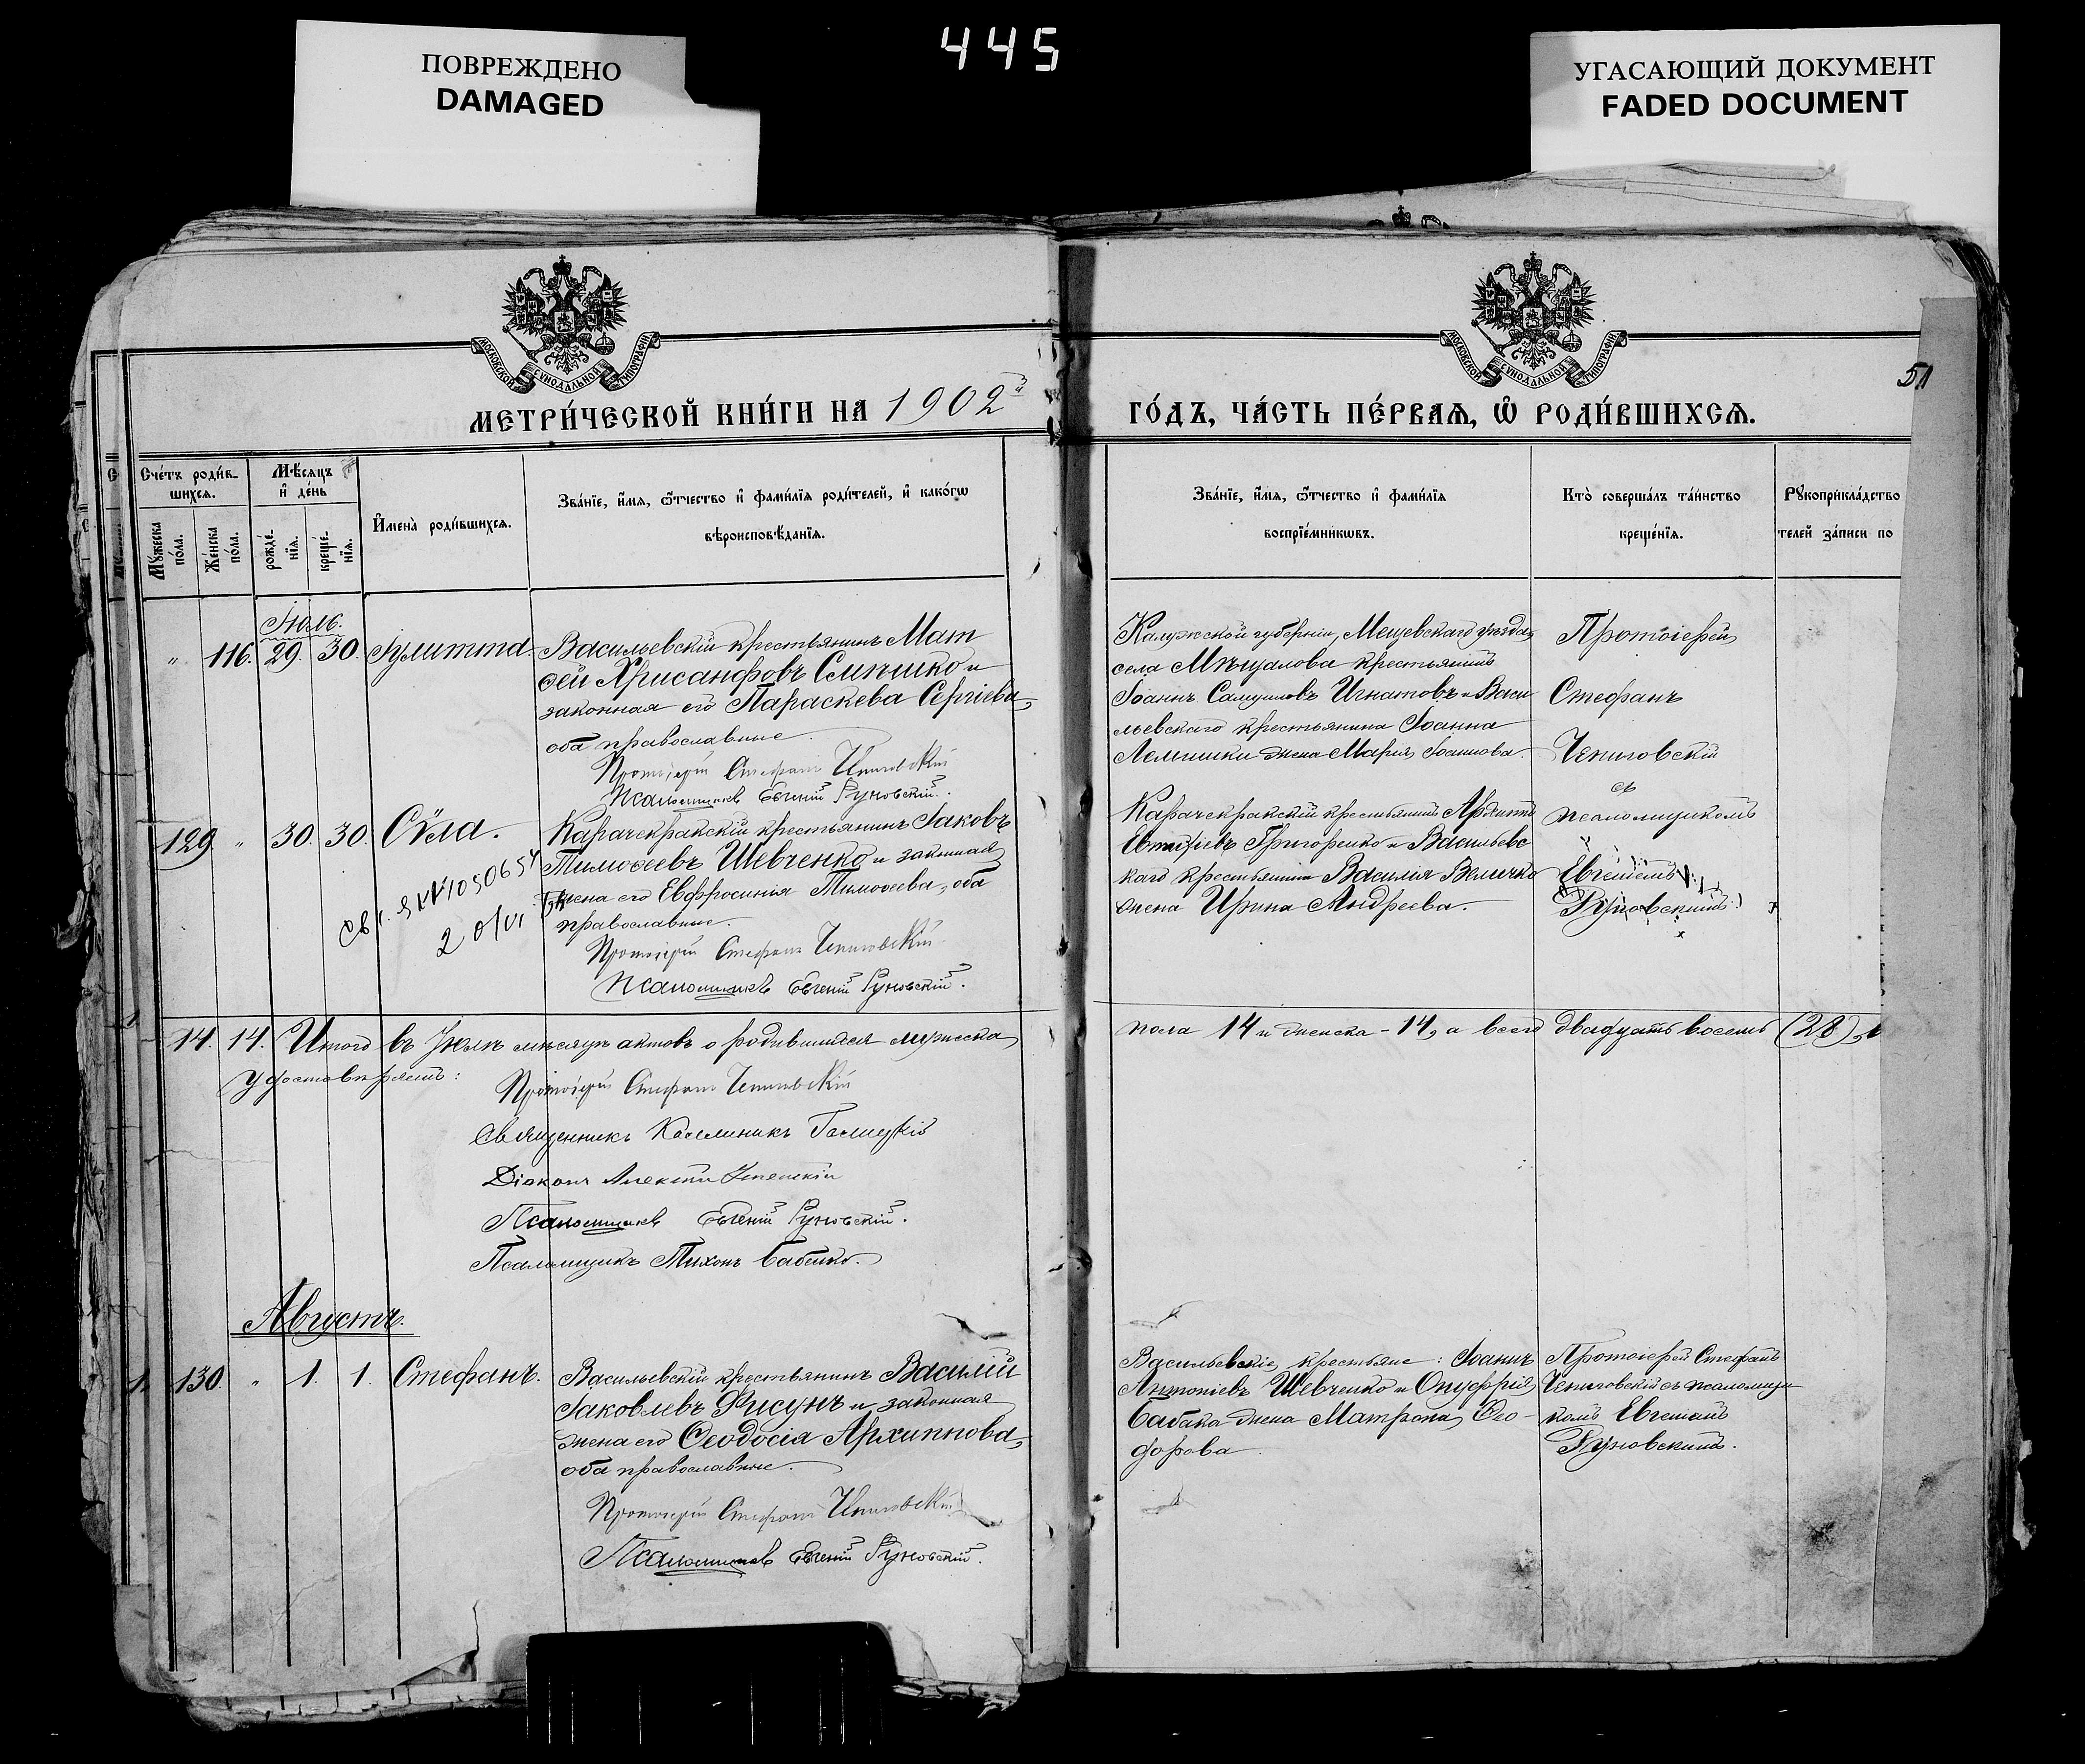 445
ПОВРЕЖДЕНО
DAMAGED
УГАСАЮЩИЙ ДОКУМЕНТ
FADED DOCUMENT
МОСКОВСКОЙ СѴНОДАЛЬНОЙ ТИПОГРАФІИ
МОСКОВСКОЙ СѴНОДАЛЬНОЙ ТИПОГРАФІИ
51
МЕТРИ́ЧЕСКОЙ КНИ́ГИ НА 1902й
ГО́ДЪ, ЧА́СТЬ ПЕ́РВАѦ, Ѽ РОДИ́ВШИХСѦ.
Сче́тъ роди́вшихсѧ.
Мꙋ́жеска по́ла.
Же́нска по́ла.
Мѣ́сѧцъ и҆ де́нь
рожде́нїѧ.
креще́нїѧ.
И҆мена̀ роди́вшихсѧ.
Зва́нїе, и҆́мѧ, ѻ҆́тчество и҆ фами́лїѧ роди́телей, и҆ како́гѡ
вѣроисповѣ́данїѧ.
Зва́нїе, и҆́мѧ, ѻ҆́тчество и҆ фами́лїѧ
воспрїе́мникѡвъ.
Кто̀ соверша́лъ та́инство
креще́нїѧ.
Рꙋкоприкла́дство
телей за́писи по
Іюль.
" 116. 29. 30. Іулитта.
Васильевскій крестьянинъ Мат
ѳей Хрисанфовъ Слипишко и
законная его Параскева Сергіева,
оба православные.
Протоіерей Стефанъ Чепиговскій
Псаломщикъ Евгеній Руновскій.
Калужской губерніи, Мещевскаго уѣзда,
села Мѣщалова крестьянинъ
Іоаннъ Самуиловъ Игнатовъ и Васи
льевскаго крестьянина Іоанна
жена Марія Іоаннова.
Протоіерей
Стефанъ
Чепиговскій
съ
псаломщикомъ
Евгеніемъ
Руновскимъ.
129. " 30. 30. Сѵла.
Карачекракскій крестьянинъ Іаковъ
Тимоѳеевъ Шевченко и законная
жена его Евфросинія Тимоѳеева, оба
православные.
Протоіерей Стефанъ Чепиговскій
Псаломщикъ Евгеній Руновскій.
1050654
20/VI
Карачекракскій крестьянинъ
Григоренко и Васильевс
каго крестьянина Василія Величко
жена Ирина Андреева.
14. 14. Итого въ Іюлѣ мѣсяцѣ актовъ о родившихся мужеска
пола 14 и женска - 14, а всего двадцать восемь (28),
удостовѣряемъ:
Протоіерей Стефанъ Чепиговскій
Священникъ Каллиникъ Галицкій
Діаконъ Алексій Успенскій
Псаломщикъ Евгеній Руновскій.
Псаломщикъ Тихонъ Бабенко.
Августъ.
130. " 1. 1. Стефанъ.
Васильевскій крестьянинъ Василій
Іаковлевъ Фисунъ и законная
жена его Ѳеодосія Архиппова,
оба православные.
Протоіерей Стефанъ Чепиговскій
Псаломщикъ Евгеній Руновскій.
Васильевскіе крестьяне: Іоаннъ
Антоніевъ Шевченко и Онуфрія
Бабака жена Матрона Ѳео-
дорова
Протоіерей Стефанъ
Чепиговскій съ псаломщи
комъ Евгеніемъ
Руновскимъ.